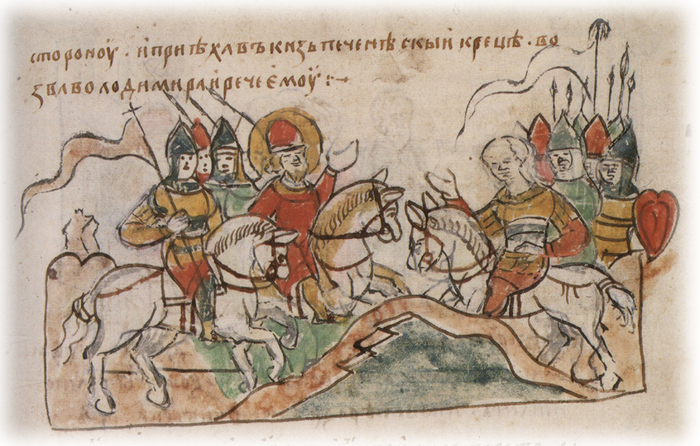 стороноу · и приѣхавъ кнзь печенѣскый к рецѣ · во
зва володимира и рече ємоу :~